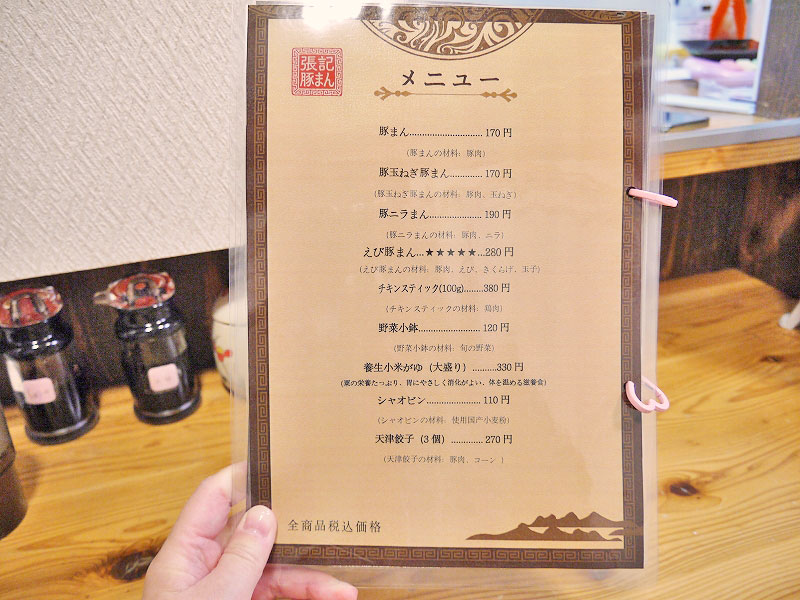 張記
豚まん
メニュー
豚まん............................. 170 円
(豚まんの材料: 豚肉)
豚玉ねぎ豚まん............. 170 円
(豚玉ねぎ豚まんの材料: 豚肉、玉ねぎ)
豚ニラまん..................... 190 円
(豚ニラまんの材料: 豚肉、ニラ)
えび豚まん...★★★★★...280 円
(えび豚まんの材料: 豚肉、えび、きくらげ、玉子)
チキンスティック(100g)........380 円
(チキンスティックの材料: 鶏肉)
野菜小鉢........................ 120 円
(野菜小鉢の材料: 旬の野菜)
養生小米がゆ (大盛り) ..........330 円
(粟の栄養たっぷり、胃にやさしく消化がよい、体を温める滋養食)
シャオビン..................... 110 円
(シャオビンの材料: 使用国産小麦粉)
天津餃子 (3 個) ............. 270 円
(天津餃子の材料: 豚肉、コーン )
全商品税込価格